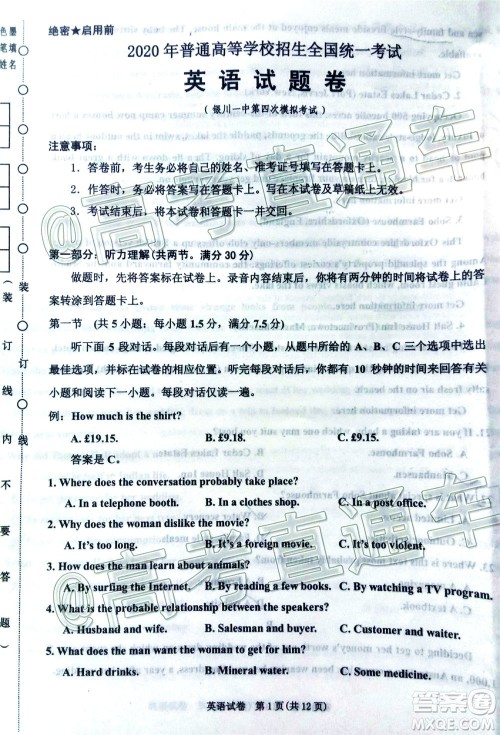 绝密★启用前
2020年普通高等学校招生全国统一考试
英语试题卷
（银川一中第四次模拟考试）
注意事项：
1．答卷前，考生务必将自己的姓名、准考证号填写在答题卡上。
2．作答时，务必将答案写在答题卡上。写在本试卷及草稿纸上无效。
3．考试结束后，将本试卷和答题卡一并交回。
第一部分：听力理解(共两节。满分30分)
做题时，先将答案标在试卷上。录音内容结束后，你将有两分钟的时间将试卷上的答
案转涂到答题卡上。
第一节 (共5小题；每小题1.5分，满分7.5分)
听下面5段对话。每段对话后有一个小题，从题中所给的A、B、C三个选项中选出
最佳选项，并标在试卷的相应位置。听完每段对话后，你都有10秒钟的时间来回答有
关小题和阅读下一小题。每段对话仅读一遍。
例：How much is the shirt?
A. £19.15. B. £9.18. C. £9.15.
答案是C。
1. Where does the conversation probably take place?
A. In a telephone booth. B. In a clothes shop. C. In an office.
2. Why does the woman dislike the movie?
A. It's too long. B. It's a foreign movie. C. It's too violent.
3. How does the man learn about animals?
A. By surfing the Internet. B. By reading books. C. By watching a TV program.
4. What is the probable relationship between the speakers?
A. Husband and wife. B. Salesman and buyer. C. Customer and waiter.
5. What does the woman want to get for him?
A. Hard drinks. B. Mineral water. C. Some medicine.
英语试卷 第1页(共12页)
色墨
笔填
姓名
(装订线内不要答题)
装订线
@高考直通车
@高考直通车
答案圈